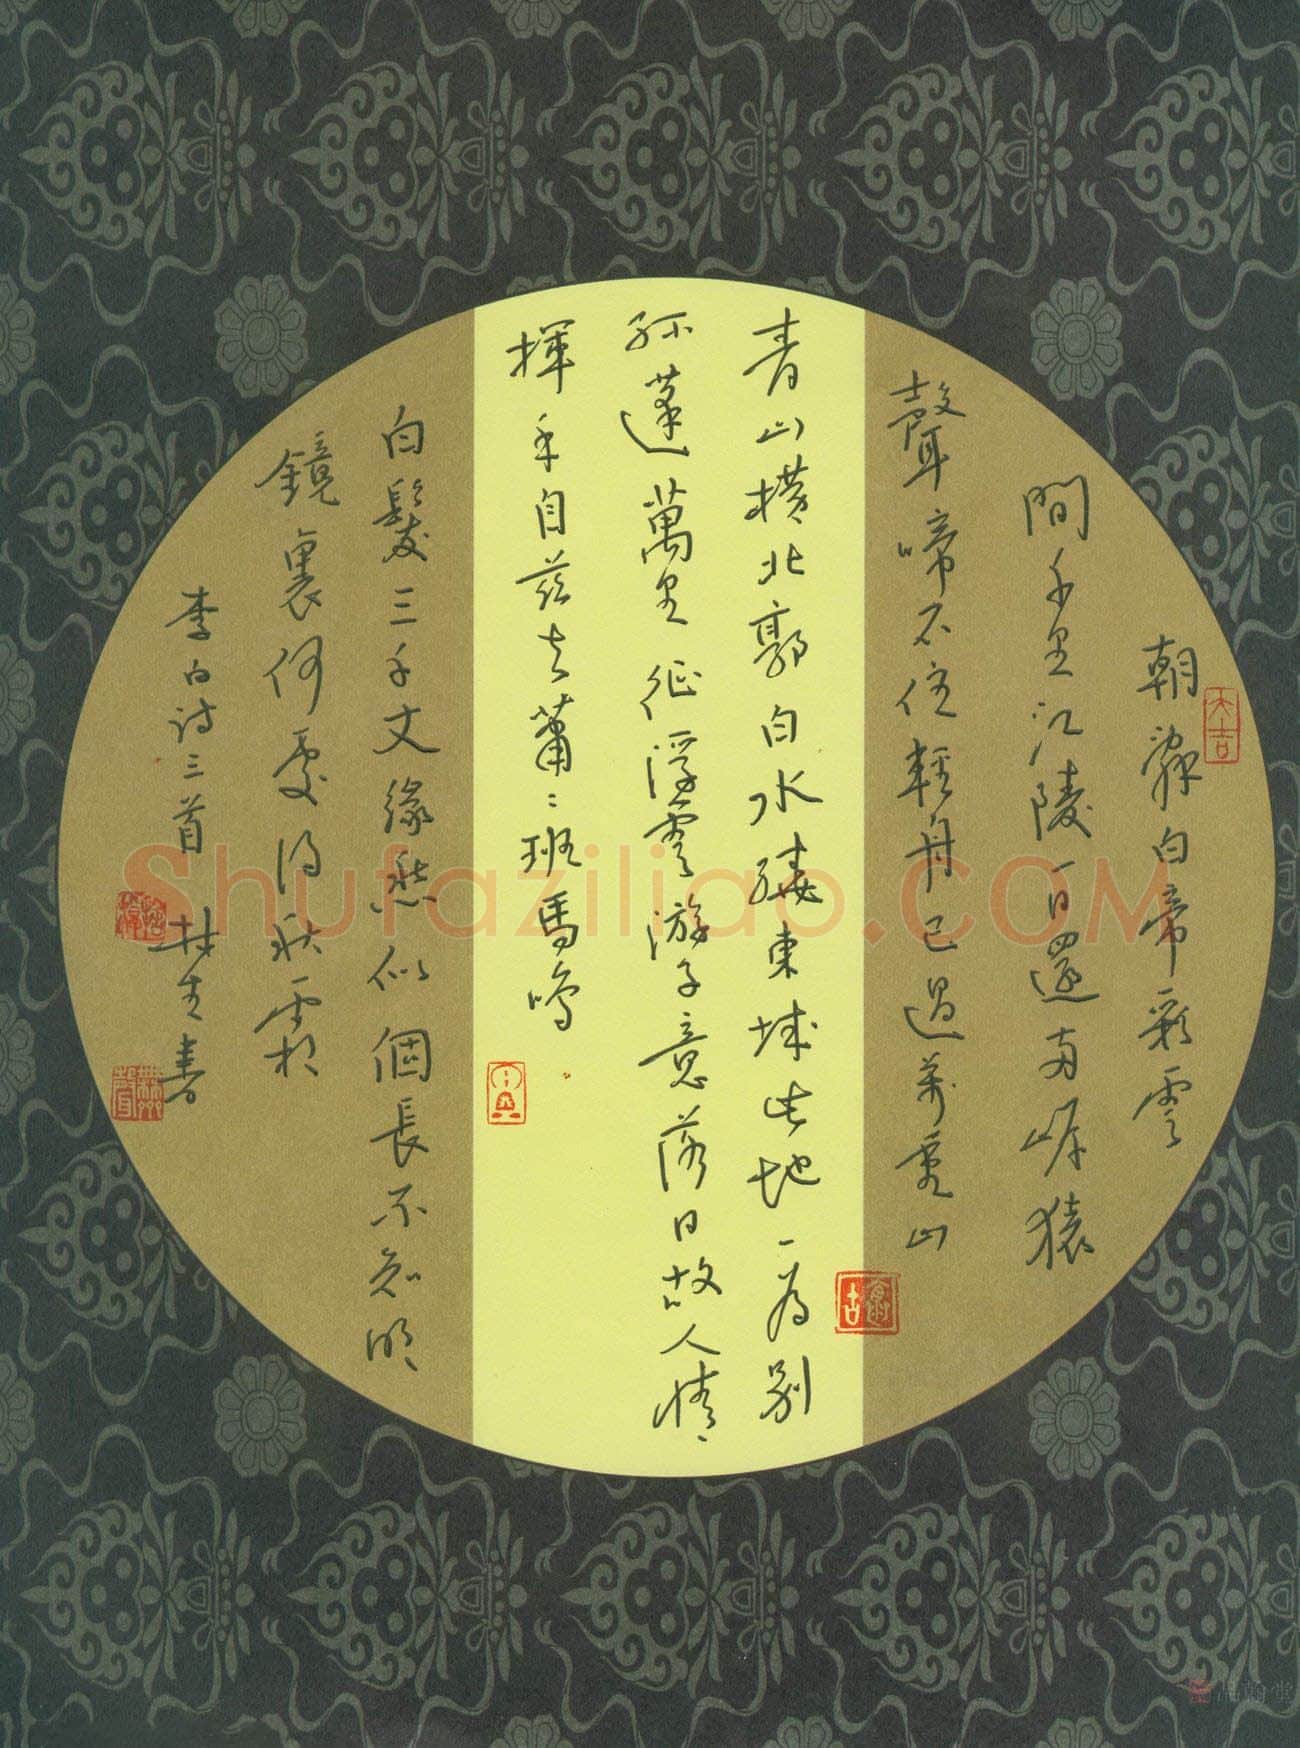 朝辭白帝彩雲
間千里江陵一日還兩岸猿
聲啼不住輕舟已過萬重山
青山橫北郭白水繞東城此地一為別
孤蓬萬里征浮雲游子意落日故人情
揮手自茲去蕭〻班馬鳴
白髮三千丈緣愁似個長不知明
鏡裏何處得秋霜
李白诗三首 林生書
大吉
Shufaziliao.COM
品翰堂